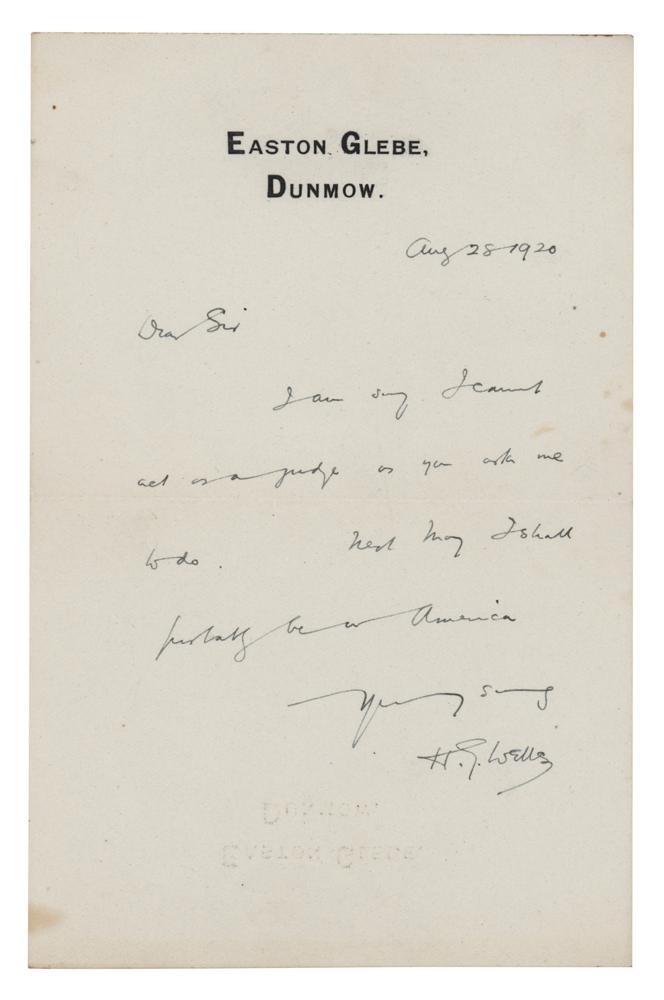 EASTON GLEBE,
DUNMOW.
Aug 28 1920
Dear Sir
I am sorry I cannot
act as a judge as you ask me
to do. Next May I shall
probably be in America
Yours
H. G. Wells
DUNMOW.
EASTON GLEBE,